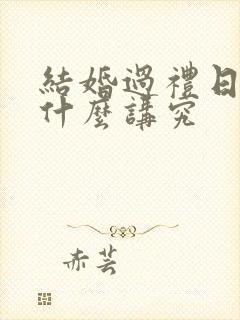 結婚過禮日
什麼講究
赤芸